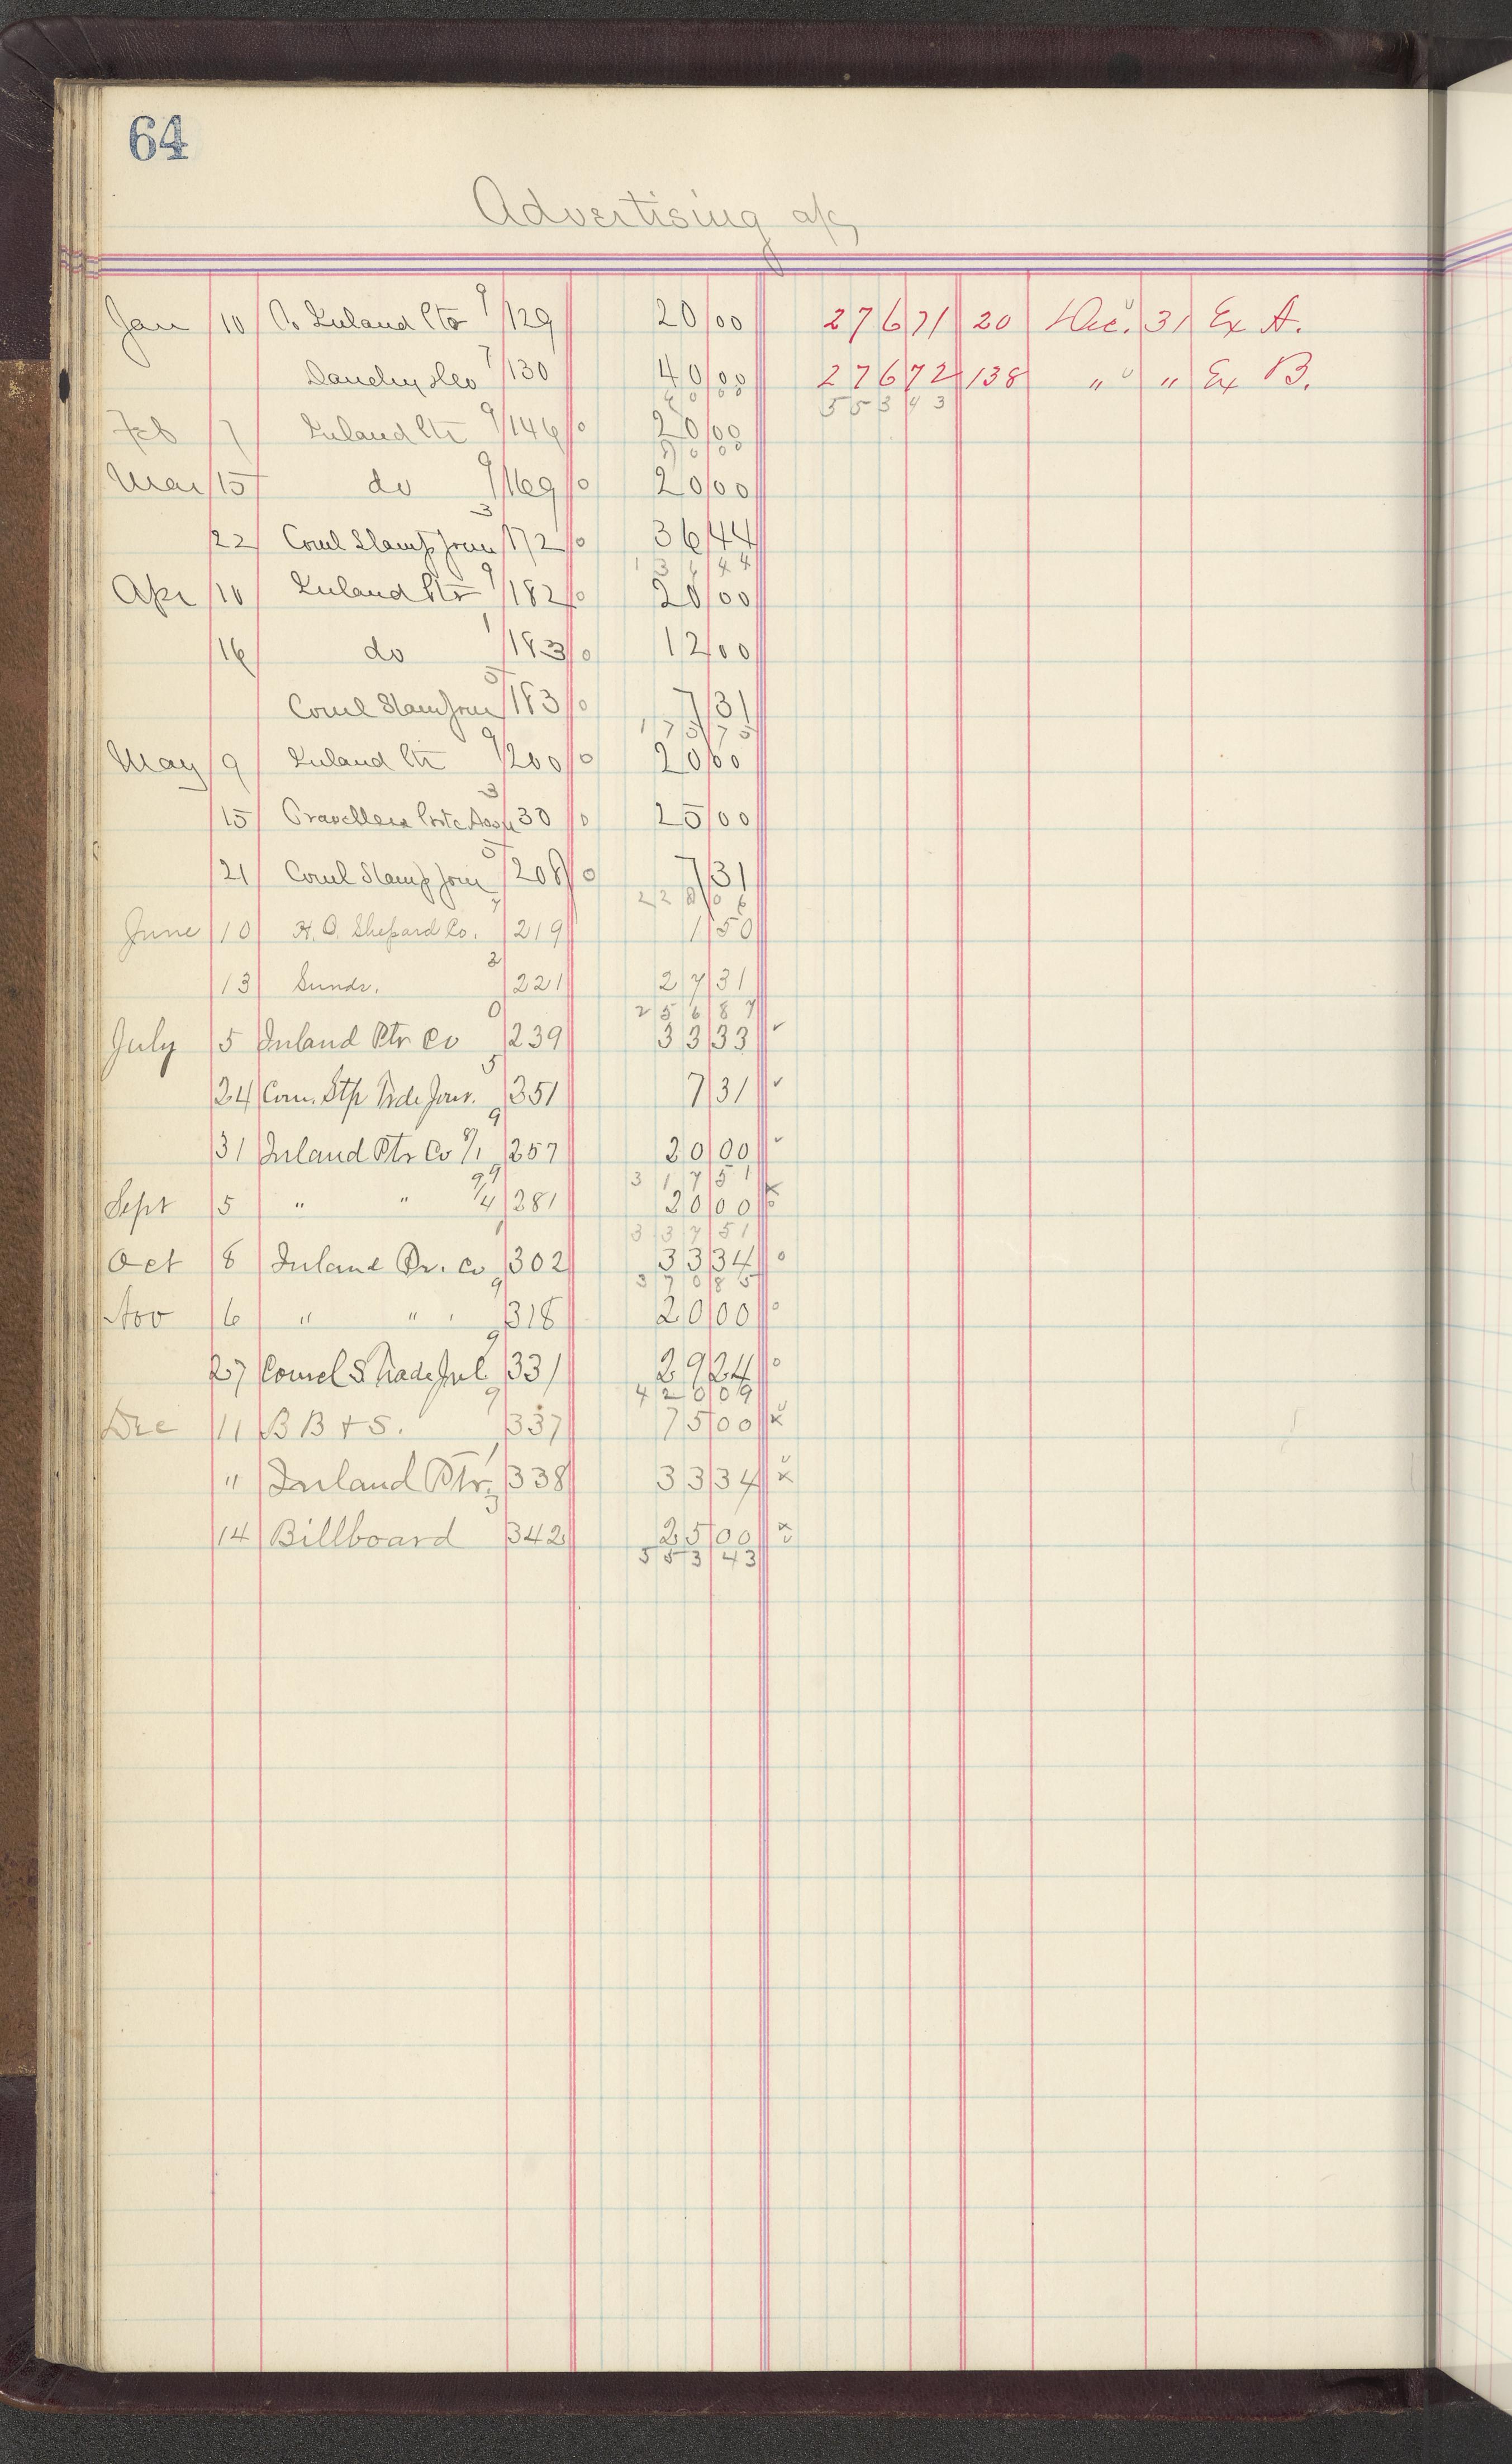 64
Advertising a/c
Jan 10 Inland Ptr 9 129 20 00 276 71 20 Dec. 31 Ex A.
7 130 40 00 276 72 138 " " Ex B.
60 00 553 43
Feb 7 Inland Ptr 9 146 0 20 00
80 00
Mar 15 do 9 169 0 20 00
22 Coml Stamp Jour 3 172 0 36 44
136 44
Apr 10 Inland Ptr 9 182 0 20 00
16 do 1 183 0 12 00
Coml Stam Jour 5 183 0 7 31
175 75
May 9 Inland Ptr 9 200 0 20 00
15 Travellers Assn 3 30 0 25 00
21 Coml Stamp Jour 5 208 0 7 31
228 06
June 10 H. O. Shepard Co. 7 219 1 50
13 Sundr. 2 221 27 31
256 87
July 5 Inland Ptr Co 0 239 33 33 ✓
24 Com. Stp Trde Jour. 5 351 7 31 ✓
31 Inland Ptr Co 8/1 9 257 20 00 ✓
317 51
Sept 5 " " 9/4 9 281 20 00 x
337 51
Oct 8 Inland Pr. Co 1 302 33 34 0
370 85
Nov 6 " " " 9 318 20 00 0
27 Comcl S Trade Jnl 9 331 29 24 0
420 09
Dec 11 B B + S. 9 337 75 00 x
" Inland Ptr. 1 338 33 34 x
14 Billboard 3 342 25 00 x
553 43